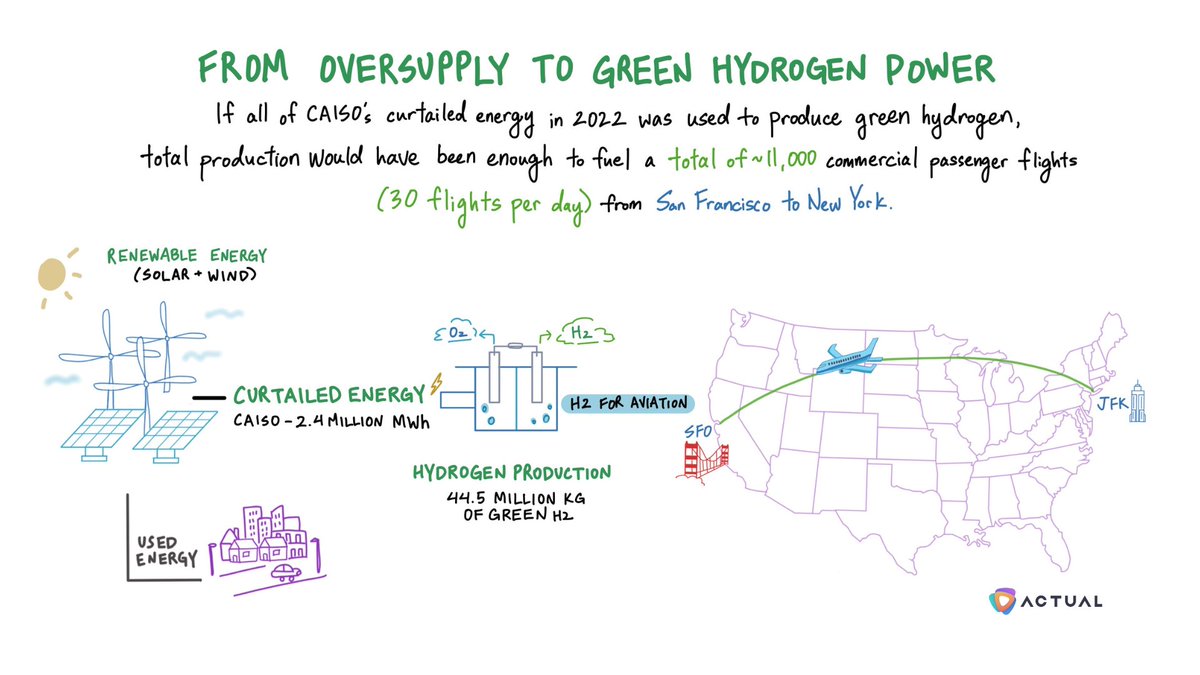 FROM OVERSUPPLY TO GREEN HYDROGEN POWER
If all of CAISO's curtailed energy in 2022 was used to produce green hydrogen,
total production would have been enough to fuel a total of ~11,000 commercial passenger flights
(30 flights per day) from San Francisco to New York.
RENEWABLE ENERGY
(SOLAR + WIND)
O2
H2
CURTAILED ENERGY
CAISO - 2.4 MILLION MWh
H2 FOR AVIATION
SFO
JFK
HYDROGEN PRODUCTION
44.5 MILLION KG
OF GREEN H2
USED
ENERGY
ACTUAL